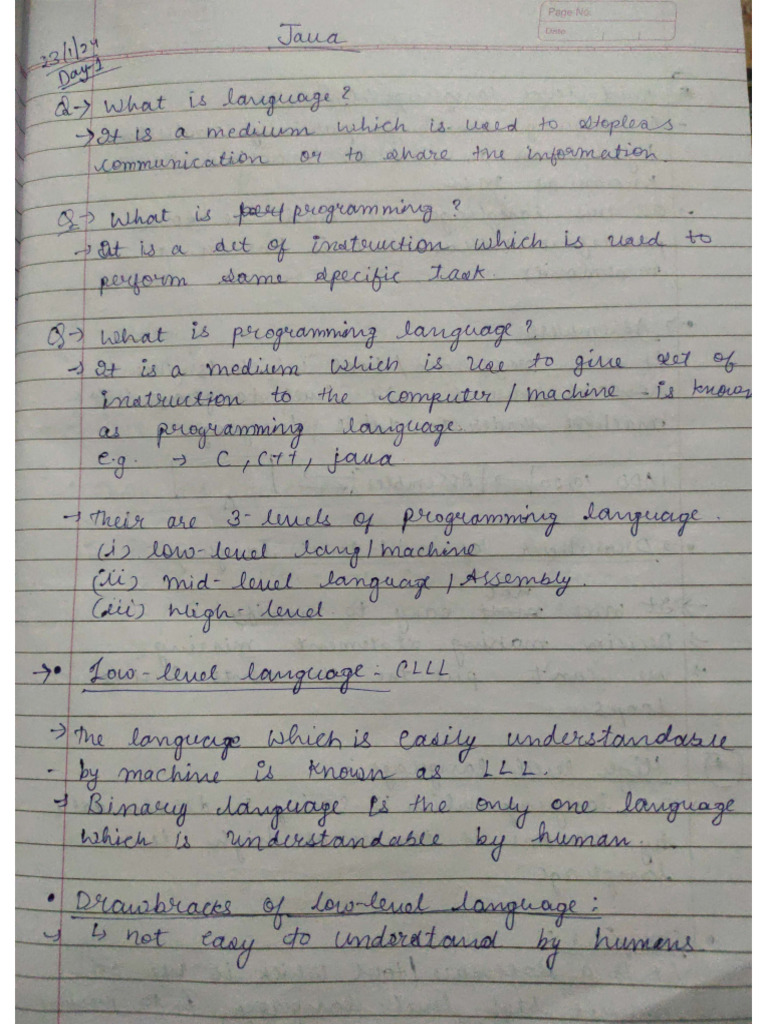 Page No.
Date
Java
23/1/24
Day-1
Q→ What is language?
→ It is a medium which is used to
communication or to share the information.
Q→ What is programming?
→ It is a set of instruction which is used to
perform some specific task.
Q→ What is programming language?
→ It is a medium which is use to give set of
instruction to the computer / machine is known
as programming language.
e.g. → C, C++, java
→ Their are 3-levels of programming language.
(i) low-level lang/machine
(ii) mid-level language / Assembly.
(iii) high-level
→ • Low-level language: (LLL
→ The language which is easily understandable
by machine is known as LLL.
→ Binary language is the only one language
which is understandable by human.
• Drawbracks of low-level language:
→ ↳ not easy to understand by humans